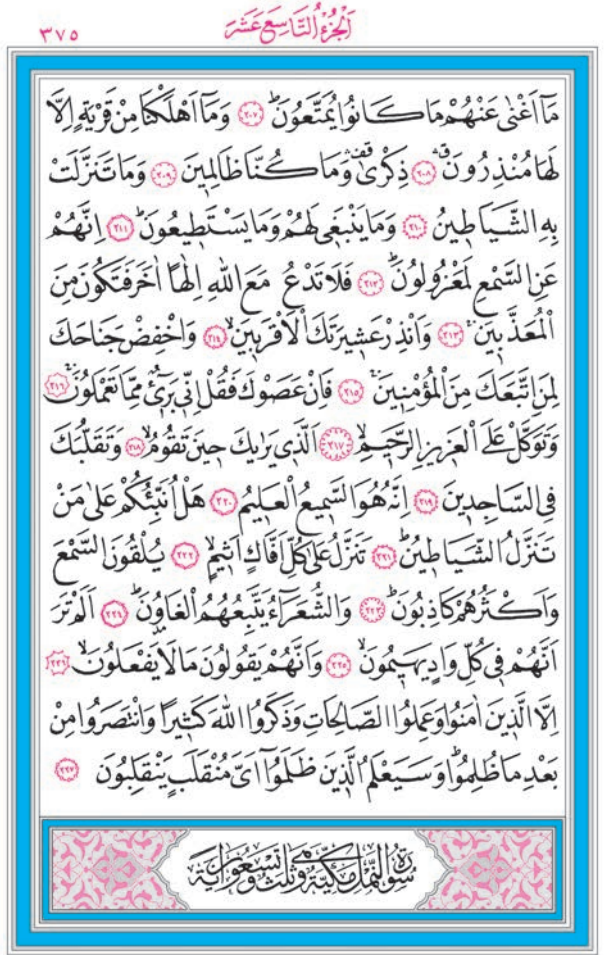 اَلْجُزْءُ التَّاسِعَ عَشَرَ
٣٧٥
مَٓا اَغْنٰى عَنْهُمْ مَا كَانُوا يُمَتَّعُونَۜ ﴿٢٠٧﴾ وَمَٓا اَهْلَكْنَا مِنْ قَرْيَةٍ اِلَّا
لَهَا مُنْذِرُونَۗ ﴿٢٠٨﴾ ذِكْرٰى۠ وَمَا كُنَّا ظَالِمٖينَ ﴿٢٠٩﴾ وَمَا تَنَزَّلَتْ
بِهِ الشَّيَاطٖينُ ﴿٢١٠﴾ وَمَا يَنْبَغٖي لَهُمْ وَمَا يَسْتَطٖيعُونَۜ ﴿٢١١﴾ اِنَّهُمْ
عَنِ السَّمْعِ لَمَعْزُولُونَۜ ﴿٢١٢﴾ فَلَا تَدْعُ مَعَ اللّٰهِ اِلٰهًا اٰخَرَ فَتَكُونَ مِنَ
الْمُعَذَّبٖينَۚ ﴿٢١٣﴾ وَاَنْذِرْ عَشٖيرَتَكَ الْاَقْرَبٖينَۙ ﴿٢١٤﴾ وَاخْفِضْ جَنَاحَكَ
لِمَنِ اتَّبَعَكَ مِنَ الْمُؤْمِنٖينَۚ ﴿٢١٥﴾ فَاِنْ عَصَوْكَ فَقُلْ اِنّٖي بَرٖٓيءٌ مِمَّا تَعْمَلُونَۚ ﴿٢١٦﴾
وَتَوَكَّلْ عَلَى الْعَزٖيزِ الرَّحٖيمِۙ ﴿٢١٧﴾ اَلَّذٖي يَرٰيكَ حٖينَ تَقُومُۙ ﴿٢١٨﴾ وَتَقَلُّبَكَ
فِي السَّاجِدٖينَ ﴿٢١٩﴾ اِنَّهُ هُوَ السَّمٖيعُ الْعَلٖيمُ ﴿٢٢٠﴾ هَلْ اُنَبِّئُكُمْ عَلٰى مَنْ
تَنَزَّلُ الشَّيَاطٖينُۜ ﴿٢٢١﴾ تَنَزَّلُ عَلٰى كُلِّ اَفَّاكٍ اَثٖيمٍۙ ﴿٢٢٢﴾ يُلْقُونَ السَّمْعَ
وَاَكْثَرُهُمْ كَاذِبُونَۜ ﴿٢٢٣﴾ وَالشُّعَرَٓاءُ يَتَّبِعُهُمُ الْغَاوُ۫نَۜ ﴿٢٢٤﴾ اَلَمْ تَرَ
اَنَّهُمْ فٖي كُلِّ وَادٍ يَهٖيمُونَۙ ﴿٢٢٥﴾ وَاَنَّهُمْ يَقُولُونَ مَا لَا يَفْعَلُونَۙ ﴿٢٢٦﴾
اِلَّا الَّذٖينَ اٰمَنُوا وَعَمِلُوا الصَّالِحَاتِ وَذَكَرُوا اللّٰهَ كَثٖيرًا وَانْتَصَرُوا مِنْ
بَعْدِ مَا ظُلِمُواۜ وَسَيَعْلَمُ الَّذٖينَ ظَلَمُٓوا اَيَّ مُنْقَلَبٍ يَنْقَلِبُونَ ﴿٢٢٧﴾
سُورَةُ النَّمْلِ مَكِّيَّةٌ وَهِيَ ثَلٰثٌ وَتِسْعُونَ اٰيَةً